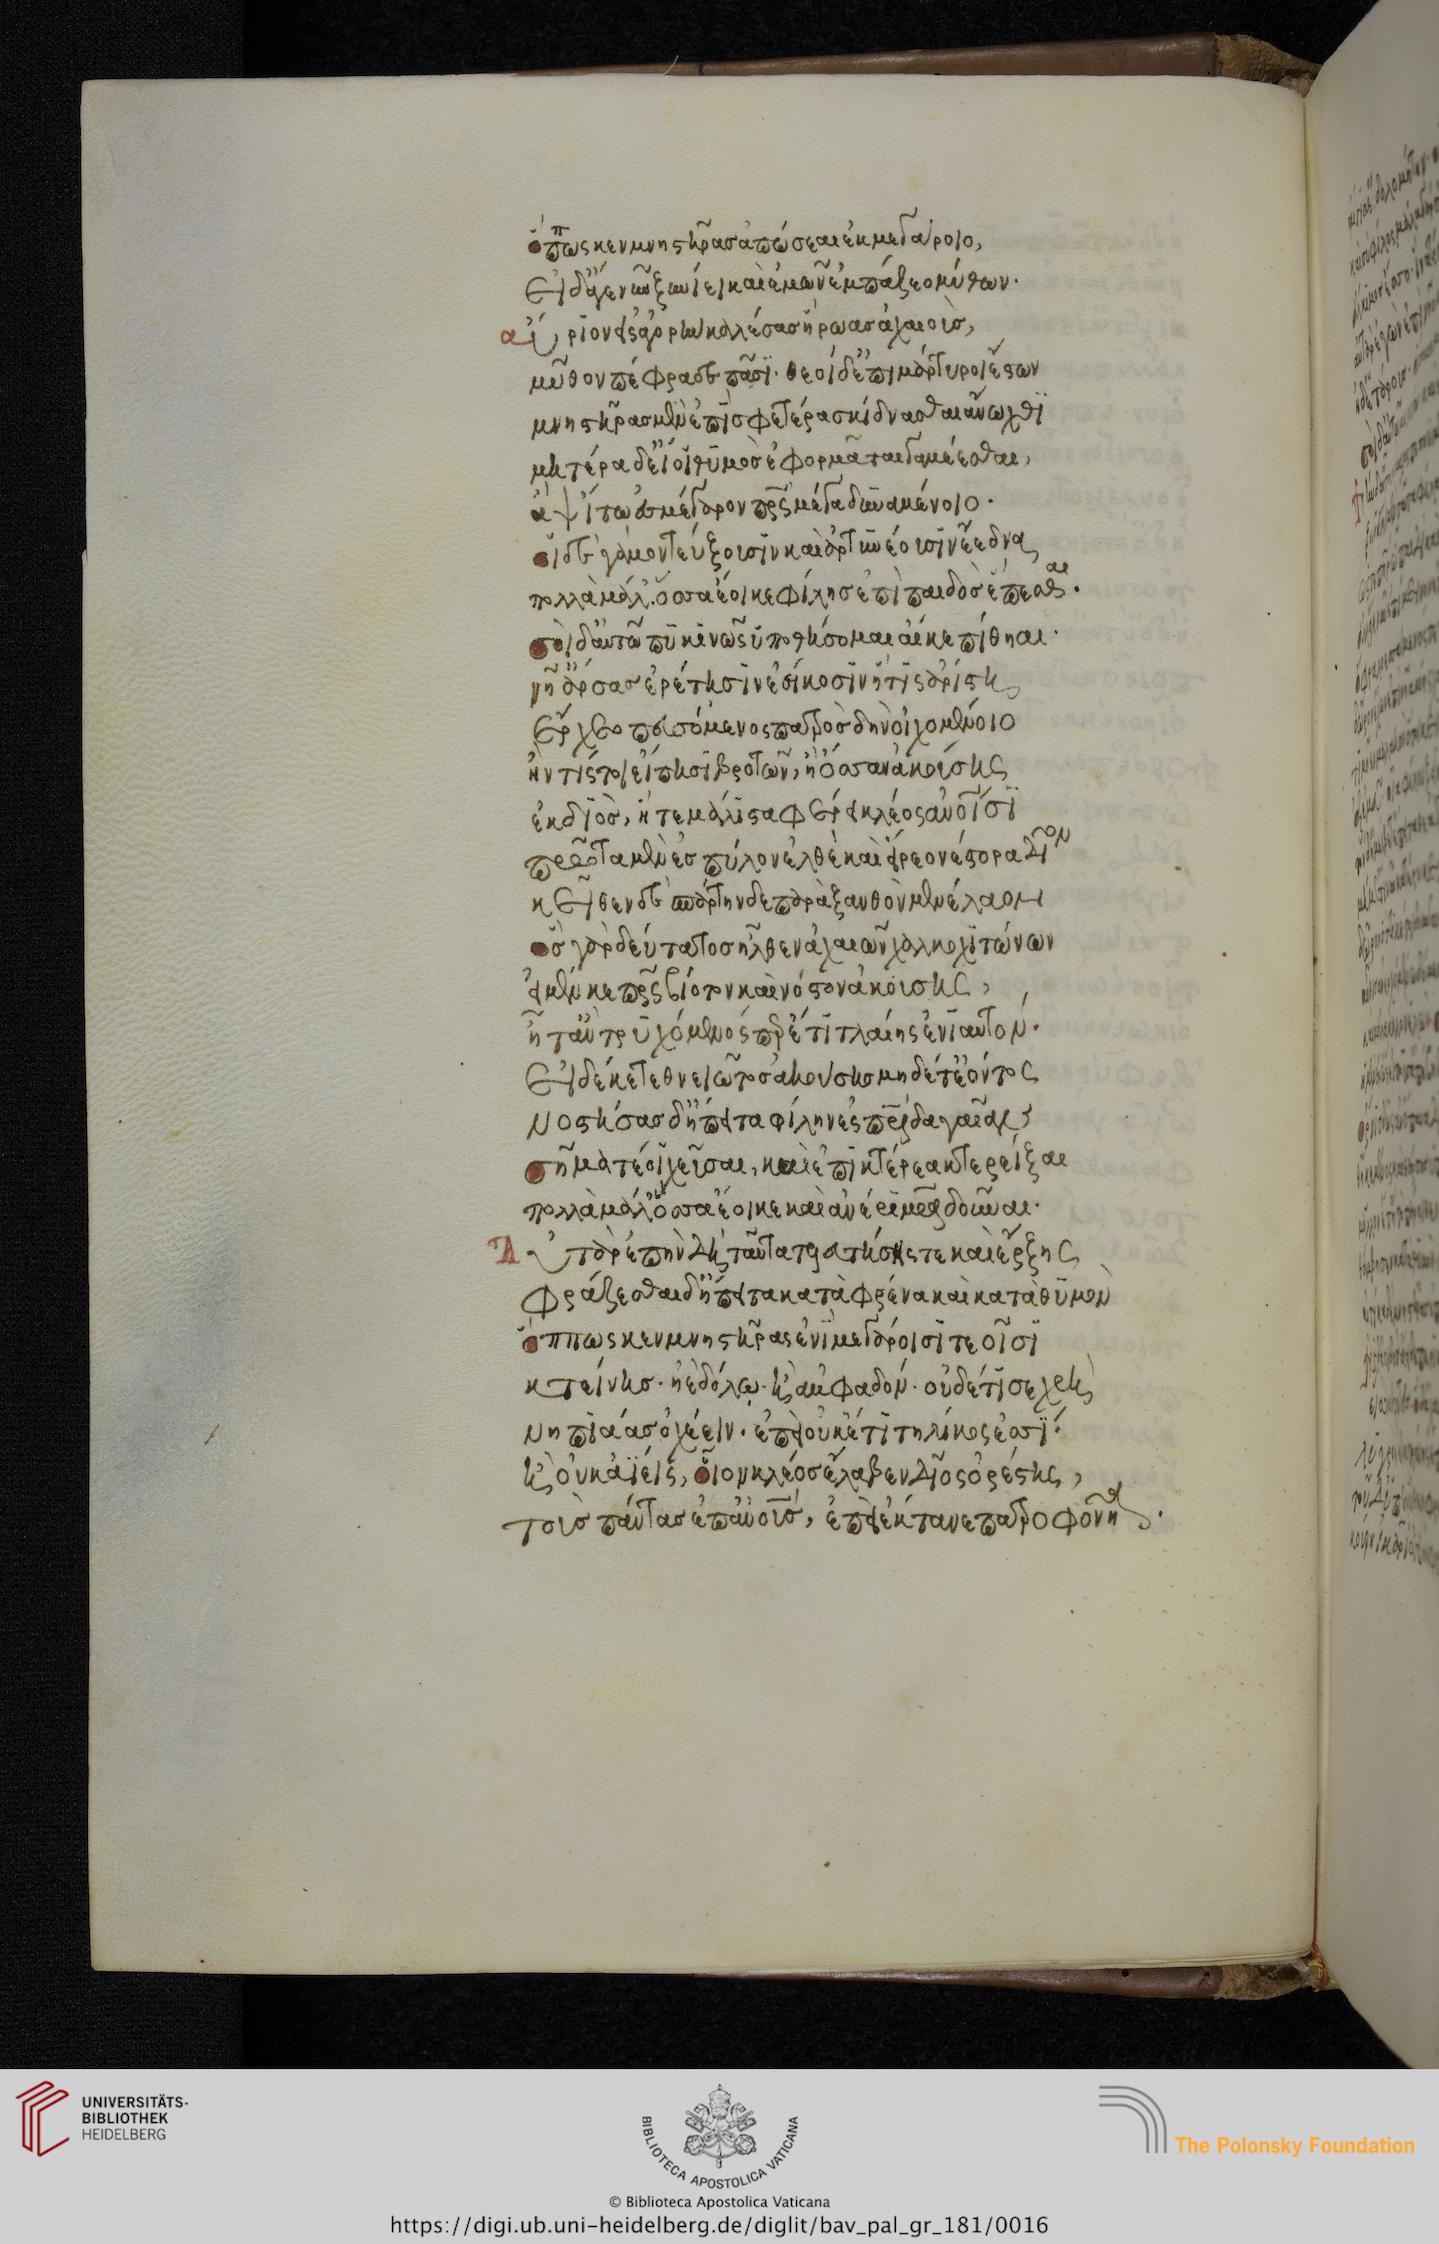 ὅππως κεν μνηστῆρας ἀπώσεαι ἐκ μεγάροιο,
Εἰ δ' ἄγε νῦν ξυνίει καὶ ἐμῶν ἐμπάζεο μύθων·
αὔριον εἰς ἀγορὴν καλέσας ἥρωας ἀχαιοὺς,
μῦθον πέφραδε πᾶσι· θεοὶ δ' ἐπὶ μάρτυροι ἔστων
μνηστῆρας μὲν ἐπὶ σφέτερα σκίδνασθαι ἄνωχθι
μητέρα δ' εἴ οἱ θυμὸς ἐφορμᾶται γαμέεσθαι,
ἂψ ἴτω ἐς μέγαρον πατρὸς μέγα δυναμένοιο·
οἱ δὲ γάμον τεύξουσιν καὶ ἀρτυνέουσιν ἔεδνα
πολλὰ μάλ' ὅσσα ἔοικε φίλης ἐπὶ παιδὸς ἕπεσθαι·
σοὶ δ' αὐτῷ πυκινῶς ὑποθήσομαι αἴ κε πίθηαι·
νῆ' ἄρσας ἐρέτησιν ἐείκοσιν ἥτις ἀρίστη
Ἔρχεο πευσόμενος πατρὸς δὴν οἰχομένοιο
ἤν τίς τοι εἴπησι βροτῶν, ἢ ὄσσαν ἀκούσης
ἐκ διὸς, ἥ τε μάλιστα φέρει κλέος ἀνθρώποισι
πρῶτα μὲν ἐς πύλον ἐλθὲ καὶ εἴρεο νέστορα δῖον
κεῖθεν δὲ σπάρτηνδε παρὰ ξανθὸν μενέλαον
ὃς γὰρ δεύτατος ἦλθεν ἀχαιῶν χαλκοχιτώνων
εἰ μέν κε πατρὸς βίοτον καὶ νόστον ἀκούσης,
ἦ τ' ἂν τρυχόμενός περ ἔτι τλαίης ἐνιαυτόν.
Εἰ δέ κε τεθνειῶτος ἀκούσης μηδέ τ' ἐόντος
νοστήσας δὴ ἔπειτα φίλην ἐς πατρίδα γαῖαν
σῆμά τέ οἱ χεῦσαι, καὶ ἐπὶ κτέρεα κτερεΐξαι
πολλὰ μάλ' ὅσσα ἔοικε καὶ ἀνέρι μητέρα δοῦναι·
Αὐτὰρ ἐπὴν δὴ ταῦτα τελευτήσης τε καὶ ἔρξης
φράζεσθαι δὴ ἔπειτα κατὰ φρένα καὶ κατὰ θυμὸν
ὅππως κεν μνηστῆρας ἐνὶ μεγάροισι τεοῖσι
κτείνης· ἠὲ δόλω· ἢ ἀμφαδόν· οὐδέ τί σε χρὴ
νηπιάας ὀχέειν· ἐπεὶ οὐκέτι τηλίκος ἐσσί·
ἢ οὐκ ἀΐεις, οἷον κλέος ἔλαβεν δῖος ὀρέστης,
πάντας ἐπ' ἀνθρώπους, ἐπεὶ ἔκτανε πατροφονῆα·
UNIVERSITÄTS-
BIBLIOTHEK
HEIDELBERG
BIBLIOTECA APOSTOLICA VATICANA
The Polonsky Foundation
© Biblioteca Apostolica Vaticana
https://digi.ub.uni-heidelberg.de/diglit/bav_pal_gr_181/0016